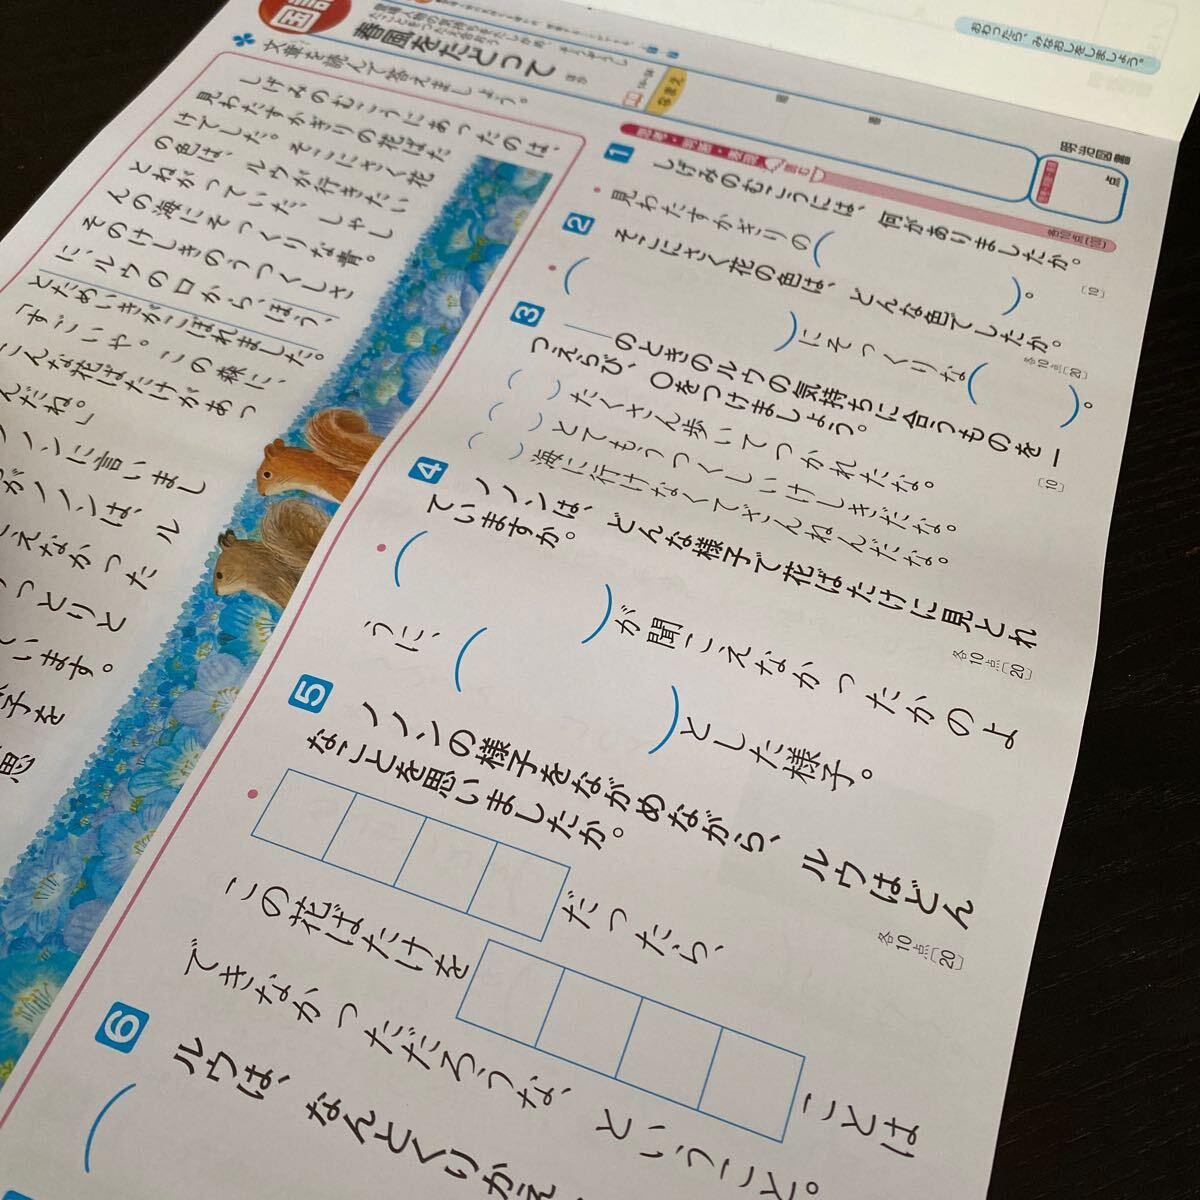 おわったら、みなおしをしましょう。
明治図書
点
国語
春風をたどって
ほか
文章を読んで答えましょう。
しげみのむこうにあったのは、
見わたすかぎりの花ばた
けでした。そこにさく花
の色は、ルウが行きたい
とねがっていた、しゃし
んの海にそっくりな青。
そのけしきのうつくしさ
に、ルウの口から、ほう、
とためいきがこぼれました。
「すごいや。この森に、
こんな花ばたけがあっ
んだね。」
ノンに言いまし
がノノンは、ル
こえなかった
っとりと
います。
子を
思
思考・判断・表現
読む
各10点
1 しげみのむこうには、何がありましたか。
[10]
見わたすかぎりの( )。
2 そこにさく花の色は、どんな色でしたか。
各10点[20]
( )にそっくりな( )。
3 ＿＿のときのルウの気持ちに合うものを一
つえらび、○をつけましょう。
[10]
( )たくさん歩いてつかれたな。
( )とてもうつくしいけしきだな。
( )海に行けなくてざんねんだな。
4 ノノンは、どんな様子で花ばたけに見とれ
ていますか。
各10点[20]
( )が聞こえなかったかのよ
うに、( )とした様子。
5 ノノンの様子をながめながら、ルウはどん
なことを思いましたか。
各10点[20]
だったら、
この花ばたけを
ことは
できなかっただろうな、ということ。
6 ルウは、なんとくりかえ